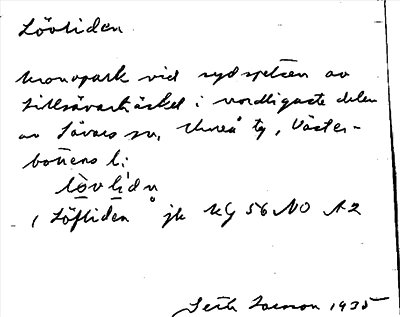 Lövliden
Kronopark vid sydspetsen av
Lillsävarträsket i nordligaste delen
av Sävars sn, Umeå tg, Väster-
bottens l:
lövlidn
, Löfliden jk KG 56 NO A2
Larsson 1935